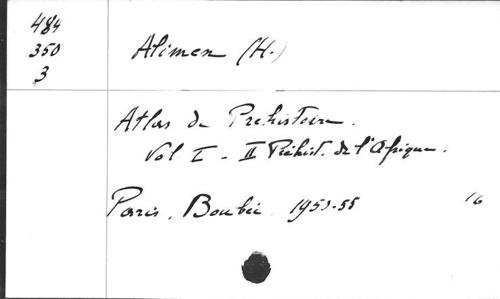 484
350
3
Alimen (H.)
Atlas de Prehistoire.
Vol I - II Préhist. de l'Afrique.
Paris, Boubée 1950-55
16